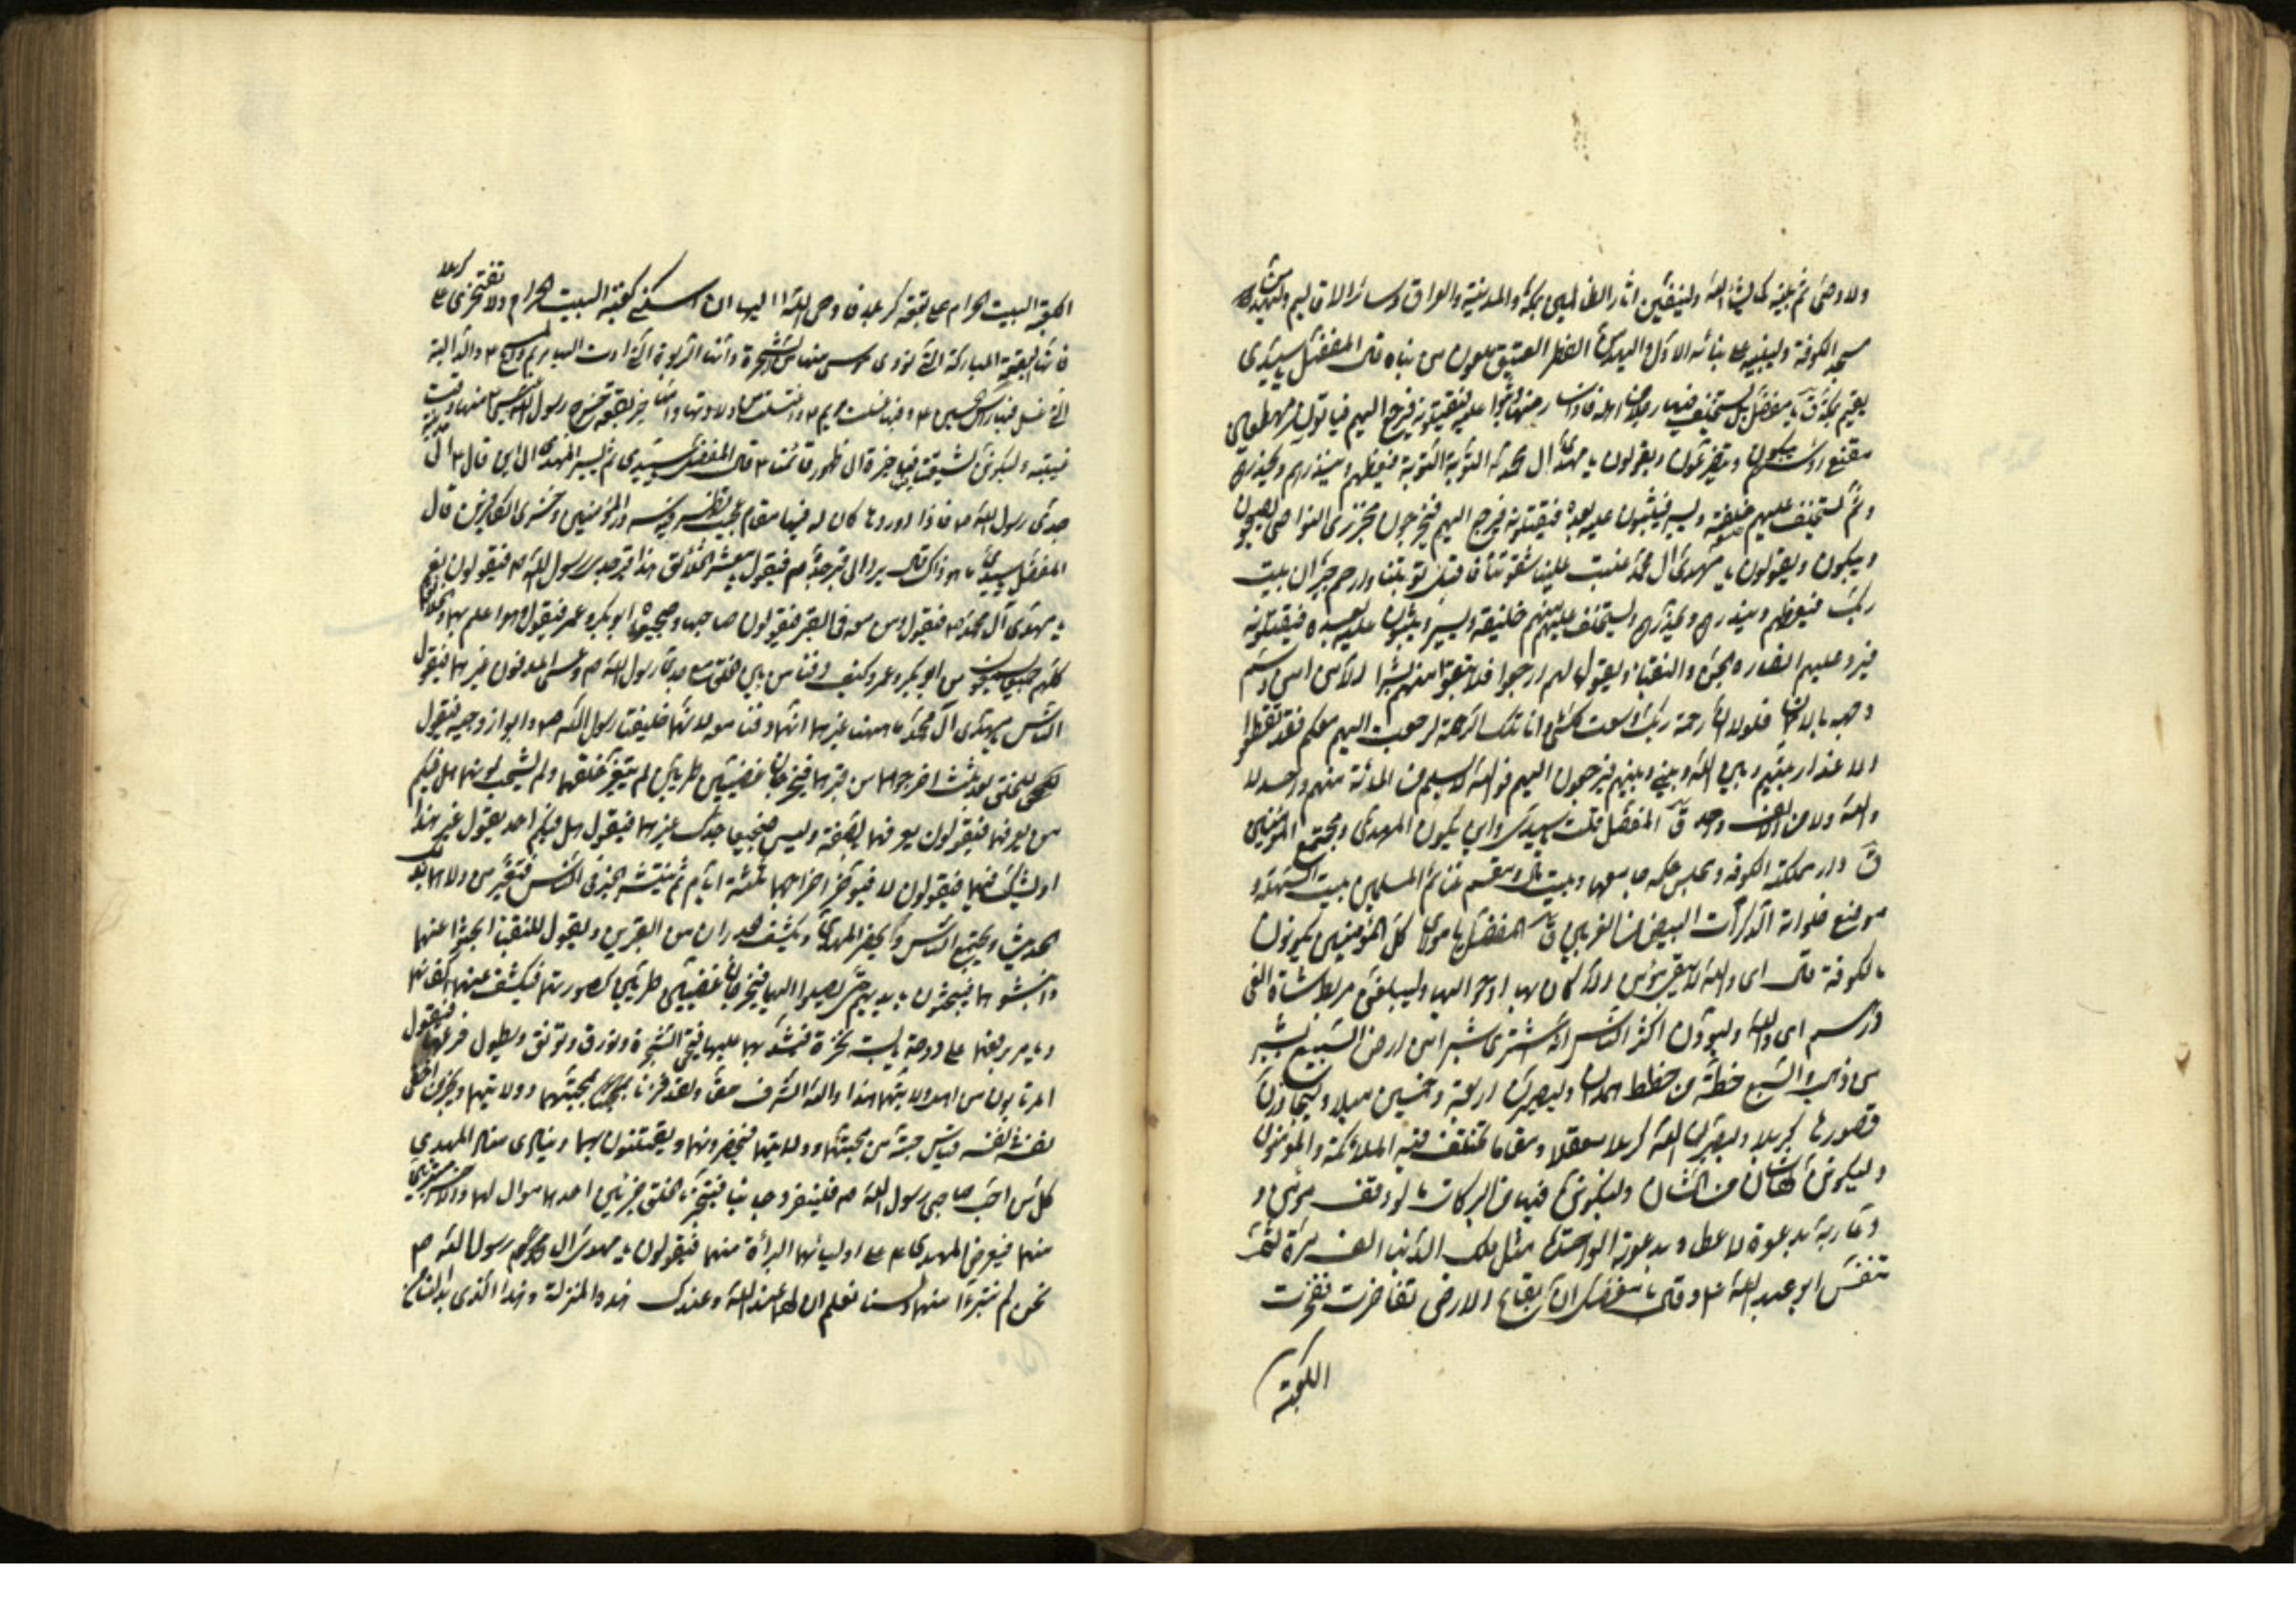 ولا وصي ثم يبنيه كما يشاء الله وليعفين اثار الظالمين بمكة والمدينة والعراق وسائر الاقاليم وليهدمن
مسجد الكوفة وليبنيه على بنائه الاول وليهدمن القصر العتيق ملعون من بناه قال المفضل يا سيدي
يقيم بمكة ق يا مفضل بل يستخلف فيها رجلا من اهله فاذا سار منها وثبوا عليه فيقتلونه فيرجع اليهم فياتونه مهطعين
مقنعي رؤسهم يبكون ويتضرعون ويقولون يا مهدي ال محمد التوبة التوبة فيعظهم وينذرهم ويحذرهم
ثم يستخلف عليهم خليفة ويسير فيثبون عليه بعده فيقتلونه فيرجع اليهم فيخرجون مجززي النواصي يضجون
ويبكون ويقولون يا مهدي ال محمد غلبت علينا شقوتنا فاقبل توبتنا وارحم جيران بيت
ربك فيعظهم وينذرهم ويحذرهم ويستخلف عليهم منهم خليفة ويسير ويثبون عليه بعده فيقتلونه
فيرد عليهم انصاره الجن والنقباء ويقول لهم ارجعوا فلا تبقوا منهم بشرا الا من امن وسم
وجهه بالايمان فلولا ان رحمة ربك وسعت كل شئ وانا تلك الرحمة لرجعت اليهم معكم فقد قطعوا
الاعذار بينهم وبين الله وبيني وبينهم فيرجعون اليهم فوالله لا يسلم من المائة منهم واحد لا
والله ولا من الالف واحد ق المفضل قلت يا سيدي واين يكون المهدي ومجتمع المؤمنين
ق دار مملكته الكوفة ومجلس حكمه جامعها وبيت ماله ومقسم غنائم المسلمين بيت السهلة و
موضع خلواته الذكوات البيض من الغريين ق المفضل يا مولاي كل المؤمنين يكونون
بالكوفة قال اي والله لا يبقى مؤمن الا كان بها او حواليها وليبلغن مربط شاة الفي
درهم اي والله وليودن اكثر الناس انه اشترى شبرا من ارض السبيع بشبر
من ذهب والسبيع خطة من خطط همدان وليصيرن اربعة وخمسين ميلا وليجاوزن
قصورها كربلا وليصيرن الله كربلا معقلا ومقاما تختلف فيه الملائكة والمؤمنون
وليكونن لها شان من الشان وليكونن فيها من البركات ما لو وقف مؤمن و
دعا ربه بدعوة لاعطاه بدعوته الواحدة مثل ملك الدنيا الف مرة ثم
تنفس ابو عبد الله ع وقال يا مفضل ان بقاع الارض تفاخرت ففخرت
الكعبة
الكعبة البيت الحرام على بقعة كربلا فاوحى الله اليها ان اسكتي كعبة البيت الحرام ولا تفتخري على كربلا
فانها البقعة المباركة التي نودي موسى منها من الشجرة وانها الربوة التي اوت اليها مريم والمسيح ع والدالية
التي غسل فيها راس الحسين ع وفيها غسلت مريم ع واغتسلت من ولادتها وانها خير بقعة عرج رسول الله منها وقت
غيبته وليكونن لشيعتنا فيها خيرة الى ظهور قائمنا ع قال المفضل يا سيدي ثم يسير المهدي الى اين قال ع الى مدينة
جدي رسول الله ص فاذا وردها كان له فيها مقام عجيب يظهر فيه سرور المؤمنين وخزي الكافرين قال
المفضل يا سيدي ما هو ذاك قال يرد الى قبر جده ص فيقول يا معشر الخلائق هذا قبر جدي رسول الله ص فيقولون نعم
يا مهدي آل محمد ص فيقول ومن معه في القبر فيقولون صاحباه وضجيعاه ابو بكر وعمر فيقول وهو اعلم بهما والخلائق
كلهم جميعا يسمعون من ابو بكر وعمر وكيف دفنا من بين الخلق مع جدي رسول الله ص وعسى المدفون غيرهما فيقول
الناس يا مهدي آل محمد ما ههنا غيرهما انهما دفنا معه لانهما خليفتا رسول الله ص وابوا زوجتيه فيقول
للخلق بعد ثلث اخرجوهما من قبريهما فيخرجان غضين طريين لم يتغير خلقهما ولم يشحب لونهما هل فيكم
من يعرفهما فيقولون يعرفهما بالصفة وليس ضجيعا جدك غيرهما فيقول هل فيكم احد يقول غير هذا
او يشك فيهما فيقولون لا فيؤخر اخراجهما ثلثة ايام ثم ينتشر الخبر في الناس
الحديث ويجتمع الناس ويحضر المهدي ويكشف الجدران من القبرين ويقول للنقباء ابحثوا عنهما
وانبشوهما فيبحثون بايديهم حتى يصلوا اليهما فيخرجان غضين طريين كصورتهما فيكشف عنهما اكفانهما
ويامر برفعهما على دوحة يابسة نخرة فيصلبهما عليها فتحيى الشجرة وتورق وتونق ويطول فرعها فيقول
المرتابون من اهل ولايتهما هذا والله الشرف حقا ولقد فزنا بمحبتهما وولايتهما
نفسه مقياس حبة من محبتهما وولايتهما فيحضرونهما ويفتتنون بهما وينادي منادي المهدي
كل من احب صاحبي رسول الله ص فلينفرد جانبا فيتجزء الخلق جزئين احدهما موال لهما والاخر متبرئ
منهما فيعرض المهدي ع على اوليائهما البرائة منهما فيقولون يا مهدي ال رسول الله ص
نحن لم نتبرء منهما ولسنا نعلم ان لهما عند الله وعندك هذه المنزلة وهذا الذي بدا لنا من